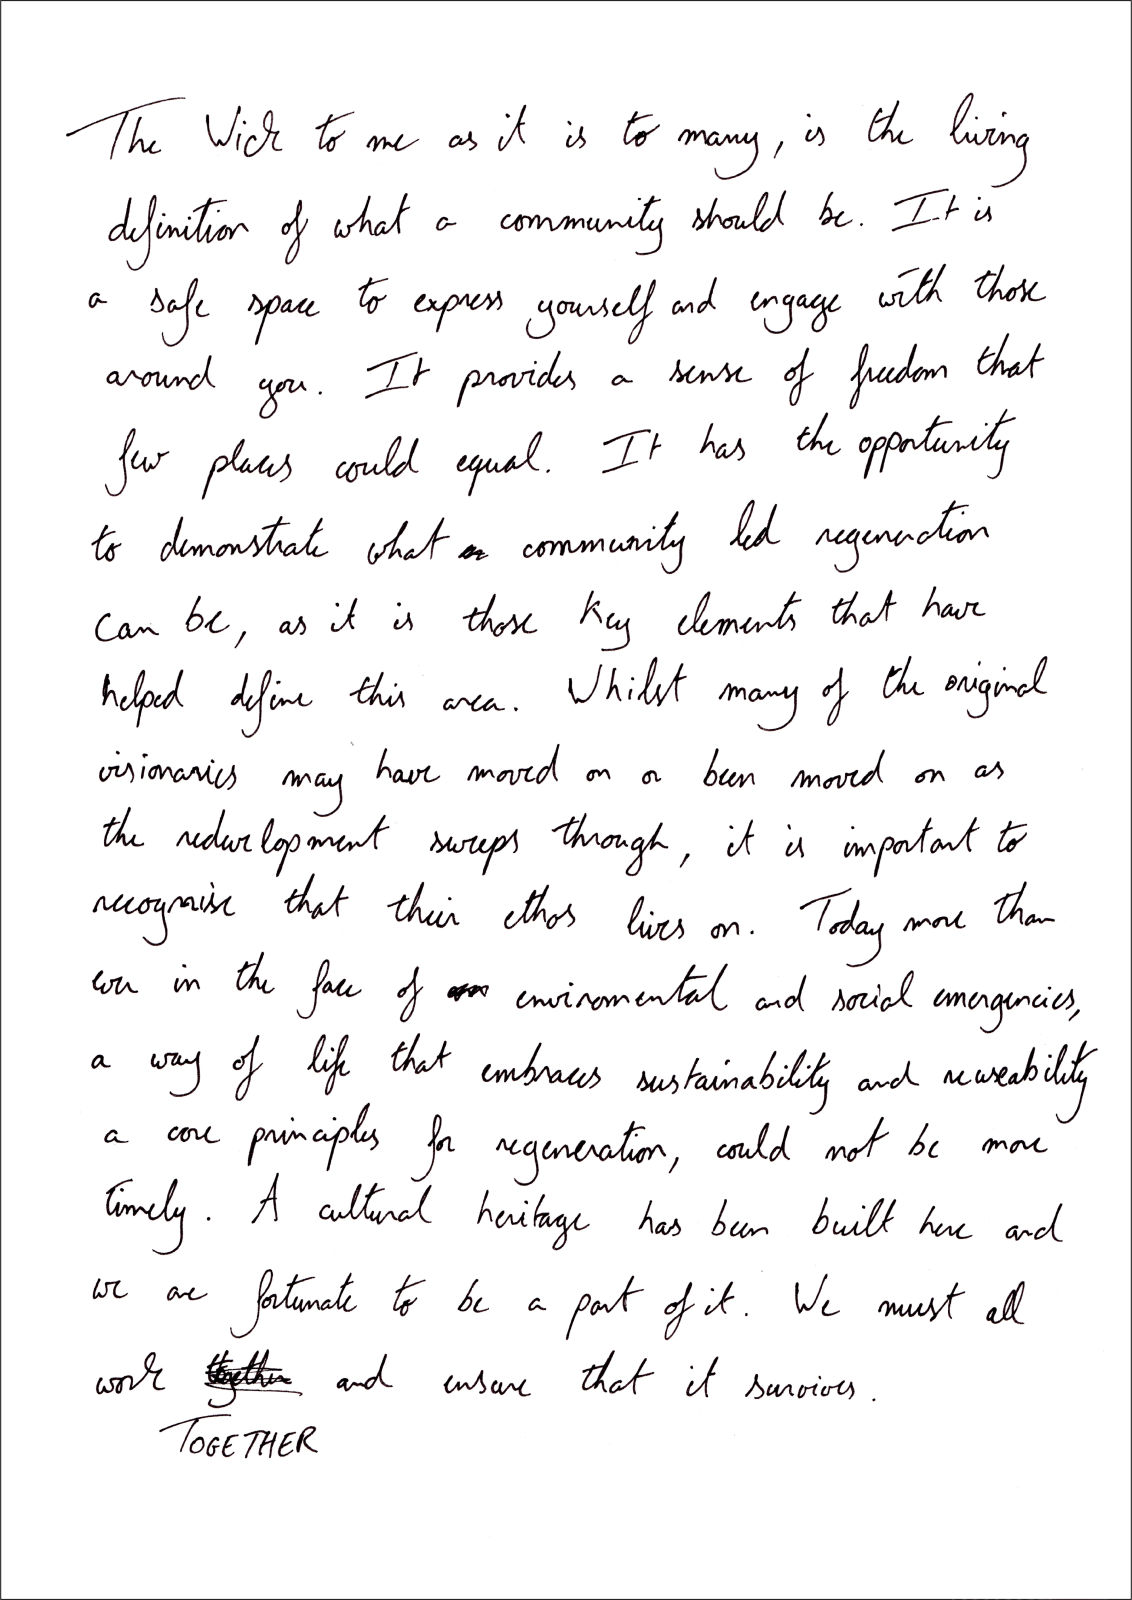 The Wick to me as it is to many, is the living
definition of what a community should be. It is
a safe space to express yourself and engage with those
around you. It provides a sense of freedom that
few places could equal. It has the opportunity
to demonstrate what community led regeneration
can be, as it is those key elements that have
helped define this area. Whilst many of the original
visionaries may have moved on or been moved on as
the redevelopment sweeps through, it is important to
recognise that their ethos lives on. Today more than
ever in the face of enviromental and social emergencies,
a way of life that embraces sustainability and reuseability
a core principles for regeneration, could not be more
timely. A cultural heritage has been built here and
we are fortunate to be a part of it. We must all
work together and ensure that it survives.
TOGETHER